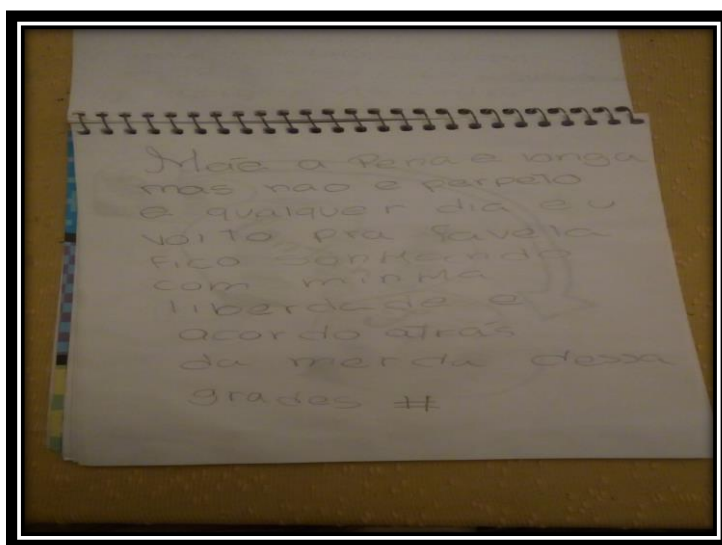 Mãe a Pena e longa
mas nao e perpeto
e qualquer dia eu
volto pra favela
fico sonhando
com minha
liberdade e
acordo atrás
da merda dessa
grades #